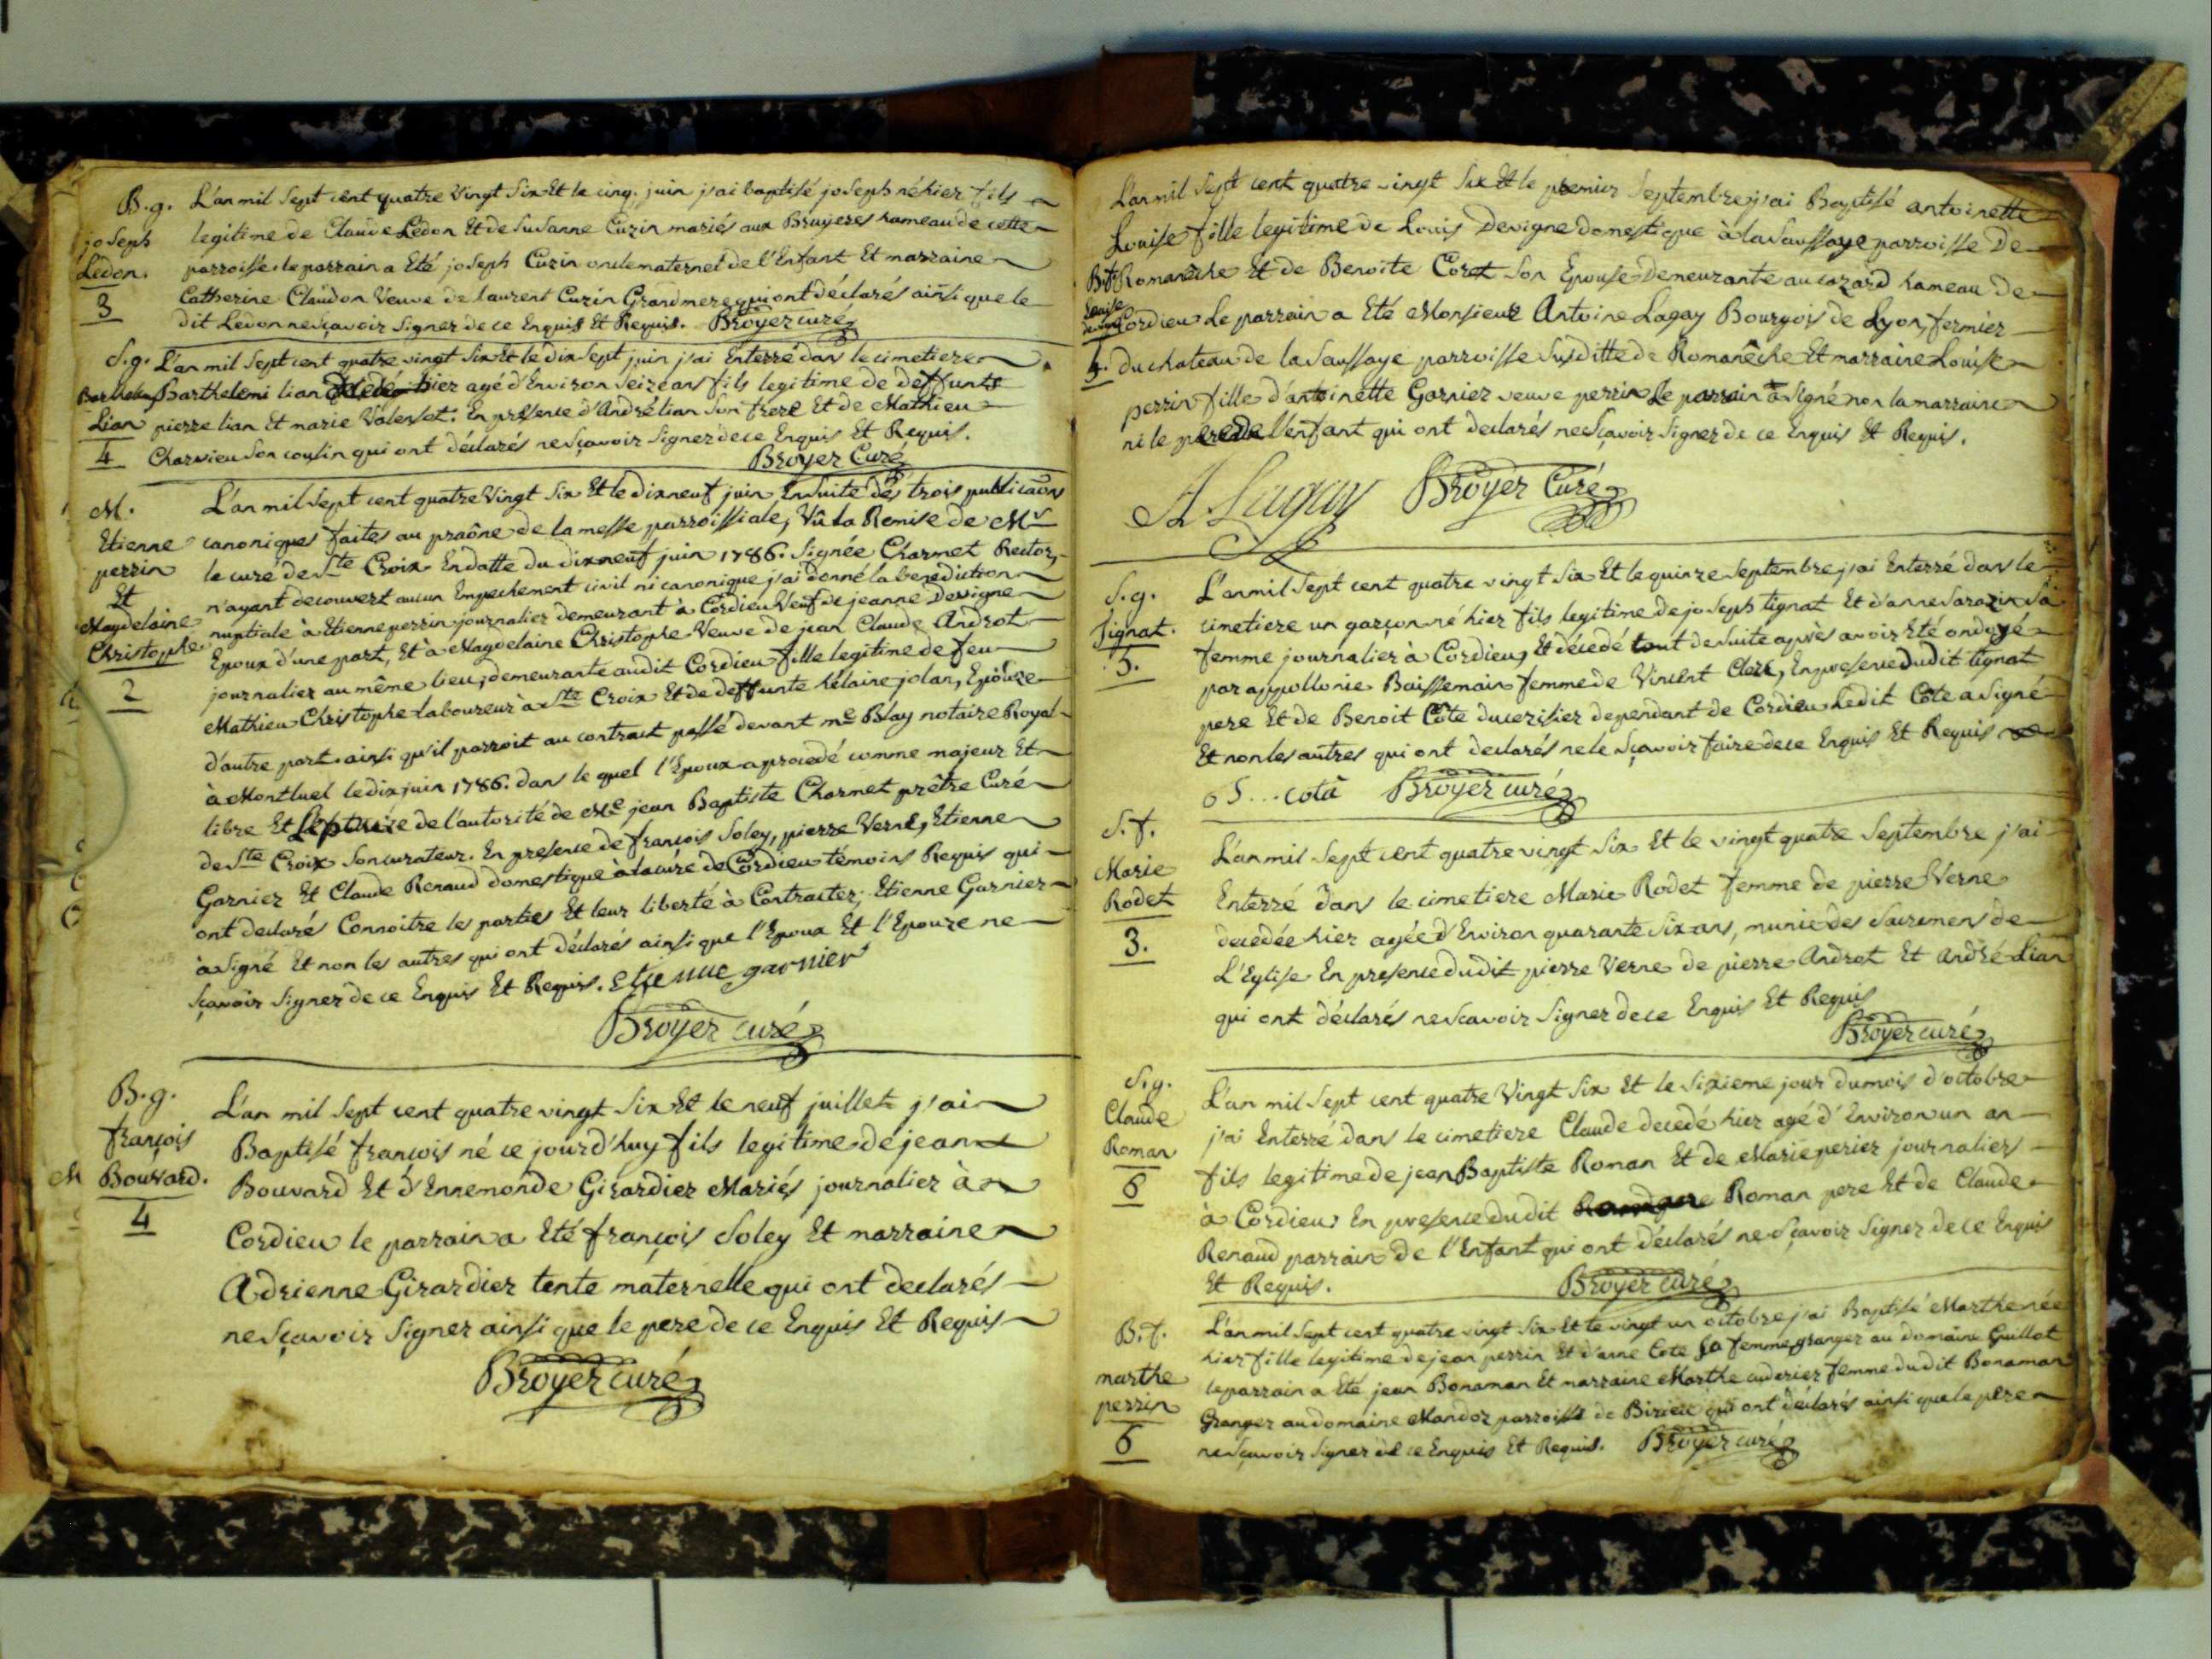 B.g.
joseph
Ledon.
3
L'an mil sept cent quatre vingt six Et le cinq juin j'ai baptisé joseph né hier fils
legitime de Claude Ledon Et de Susanne Cuzin mariés aux Bruyeres hameau de cette
parroisse. le parrain a Eté joseph Cuzin oncle maternel de l'Enfant Et marraine
Catherine Claudon Veuve de laurent Cuzin Grand mere qui ont déclarés ainsi que le
dit Ledon ne sçavoir signer de ce Enquis Et Requis. Broyer curé
S.g.
Barthelemy
Lian
4
L'an mil sept cent quatre vingt six Et le dix sept juin j'ai Enterré dans le cimetiere
Barthelemi lian décédé hier agé d'Environ seize ans fils legitime de deffunts
pierre lian Et marie Valenset. En présence d'André lian son frere Et de Mathieu
Charvieu son cousin qui ont déclarés ne sçavoir signer de ce Enquis Et Requis.
Broyer Curé
M.
Etienne
perrin
Et
Magdelaine
Christophe
2
L'an mil sept cent quatre Vingt six Et le dix neuf juin Ensuite des trois publicaõns
canoniques faites au praône de la messe parroissiale, Vû la Remise de Mr
le curé de Ste Croix En datte du dix neuf juin 1786. signée Charmet Rector,
n'ayant decouvert aucun Empechement civil ni canonique j'ai donné la benediction
nuptiale à Etienne perrin journalier demeurant à Cordieu Veuf de jeanne Devigne
Epoux d'une part, Et à Magdelaine Christophe Veuve de jean Claude Androt
journalier au même lieu, demeurante audit Cordieu fille legitime de feu
Mathieu Christophe laboureur à Ste Croix Et de deffunte hélaine jolan, Epouze
d'autre part. ainsi qu'il parroit au contract passé devant me Blay notaire Royal
à Montluel le dix juin 1786. dans le quel l'Epoux a procedé comme majeur Et
libre Et l'Epouze de l'autorité de Me jean Baptiste Charmet prêtre Curé
de Ste Croix son curateur. En presence de françois Soley, pierre Verne, Etienne
Garnier Et Claude Renaud domestique à la cure de Cordieu témoins Requis qui
ont declarés Connoitre les parties Et leur liberté à Contracter; Etienne Garnier
à signé Et non les autres qui ont déclarés ainsi que l'Epoux Et l'Epouze ne
sçavoir signer de ce Enquis Et Requis. etienne garnier
Broyer curé
B.g.
françois
Bouvard.
4
L'an mil sept cent quatre vingt six Et le neuf juillet j'ai
Baptisé françois né ce jourd'huy fils legitime de jean
Bouvard Et d'Ennemonde Girardier Mariés journalier à
Cordieu le parrain a Eté françois Soley Et marraine
Adrienne Girardier tente maternelle qui ont declarés
ne sçavoir signer ainsi que le pere de ce Enquis Et Requis
Broyer curé
B.f.
Louise
devigne
5.
L'an mil sept cent quatre vingt six Et le premier septembre j'ai Baptisé antoinette
Louise fille legitime de Louis Devigne domestique à la Saussaye parroisse De
Romanêche Et de Benoite Coret son Epouse Demeurante au cazard hameau de
Cordieu Le parrain a Eté Monsieur Antoine Lagay Bourgois de Lyon, fermier
du chateau de la Saussaye parroisse susditte de Romanêche Et marraine Louise
perrin fille d'antoinette Garnier veuve perrin Le parrain a signé non la marraine
ni le pere de l'enfant qui ont declarés ne sçavoir signer de ce Enquis Et Requis.
A Lagay Broyer Curé
S.g.
tignat.
5.
L'an mil sept cent quatre vingt six Et le quinze septembre j'ai Enterré dans le
cimetiere un garçon né hier fils legitime de joseph tignat Et d'anne Sarazin sa
femme journalier à Cordieu, Et décedé tout de suite après avoir Eté ondoyé
par appollonie Baissemain femme de Vincent Clerc, En presence dudit tignat
pere Et de Benoit Côte du cerisier dependant de Cordieu Ledit Côte a signé
Et non les autres qui ont declarés ne le sçavoir faire de ce Enquis Et Requis
cotà Broyer curé
S.f.
Marie
Rodet
3.
L'an mil sept cent quatre vingt six Et le vingt quatre septembre j'ai
Enterré dans le cimetiere Marie Rodet femme de pierre Verne
decedée hier agée d'Environ quarante six ans, munie des sacremens de
L'Eglise En presence dudit pierre Verne de pierre Androt Et André Lian
qui ont déclarés ne scavoir signer de ce Enquis Et Requis
Broyer curé
S.g.
Claude
Roman
6
L'an mil sept cent quatre Vingt six Et le sixieme jour du mois d'octobre
j'ai Enterré dans le cimetiere Claude decedé hier agé d'Environ un an
fils legitime de jean Baptiste Roman Et de Marie perier journalier
à Cordieu En presence dudit Roman pere Et de Claude
Renaud parrain de l'Enfant qui ont déclarés ne sçavoir signer de ce Enquis
Et Requis. Broyer curé
B.f.
marthe
perrin
6
L'an mil sept cent quatre vingt six Et le vingt un octobre j'ai Baptisé Marthe née
hier fille legitime de jean perrin Et d'anne Cote sa femme granger au domaine Guillot
le parrain a Eté jean Bonaman Et marraine Marthe cuderier femme dudit Bonaman
Granger au domaine Mandoz parroisse de Birieu qui ont déclarés ainsi que le pere
ne sçavoir signer de ce Enquis Et Requis. Broyer curé